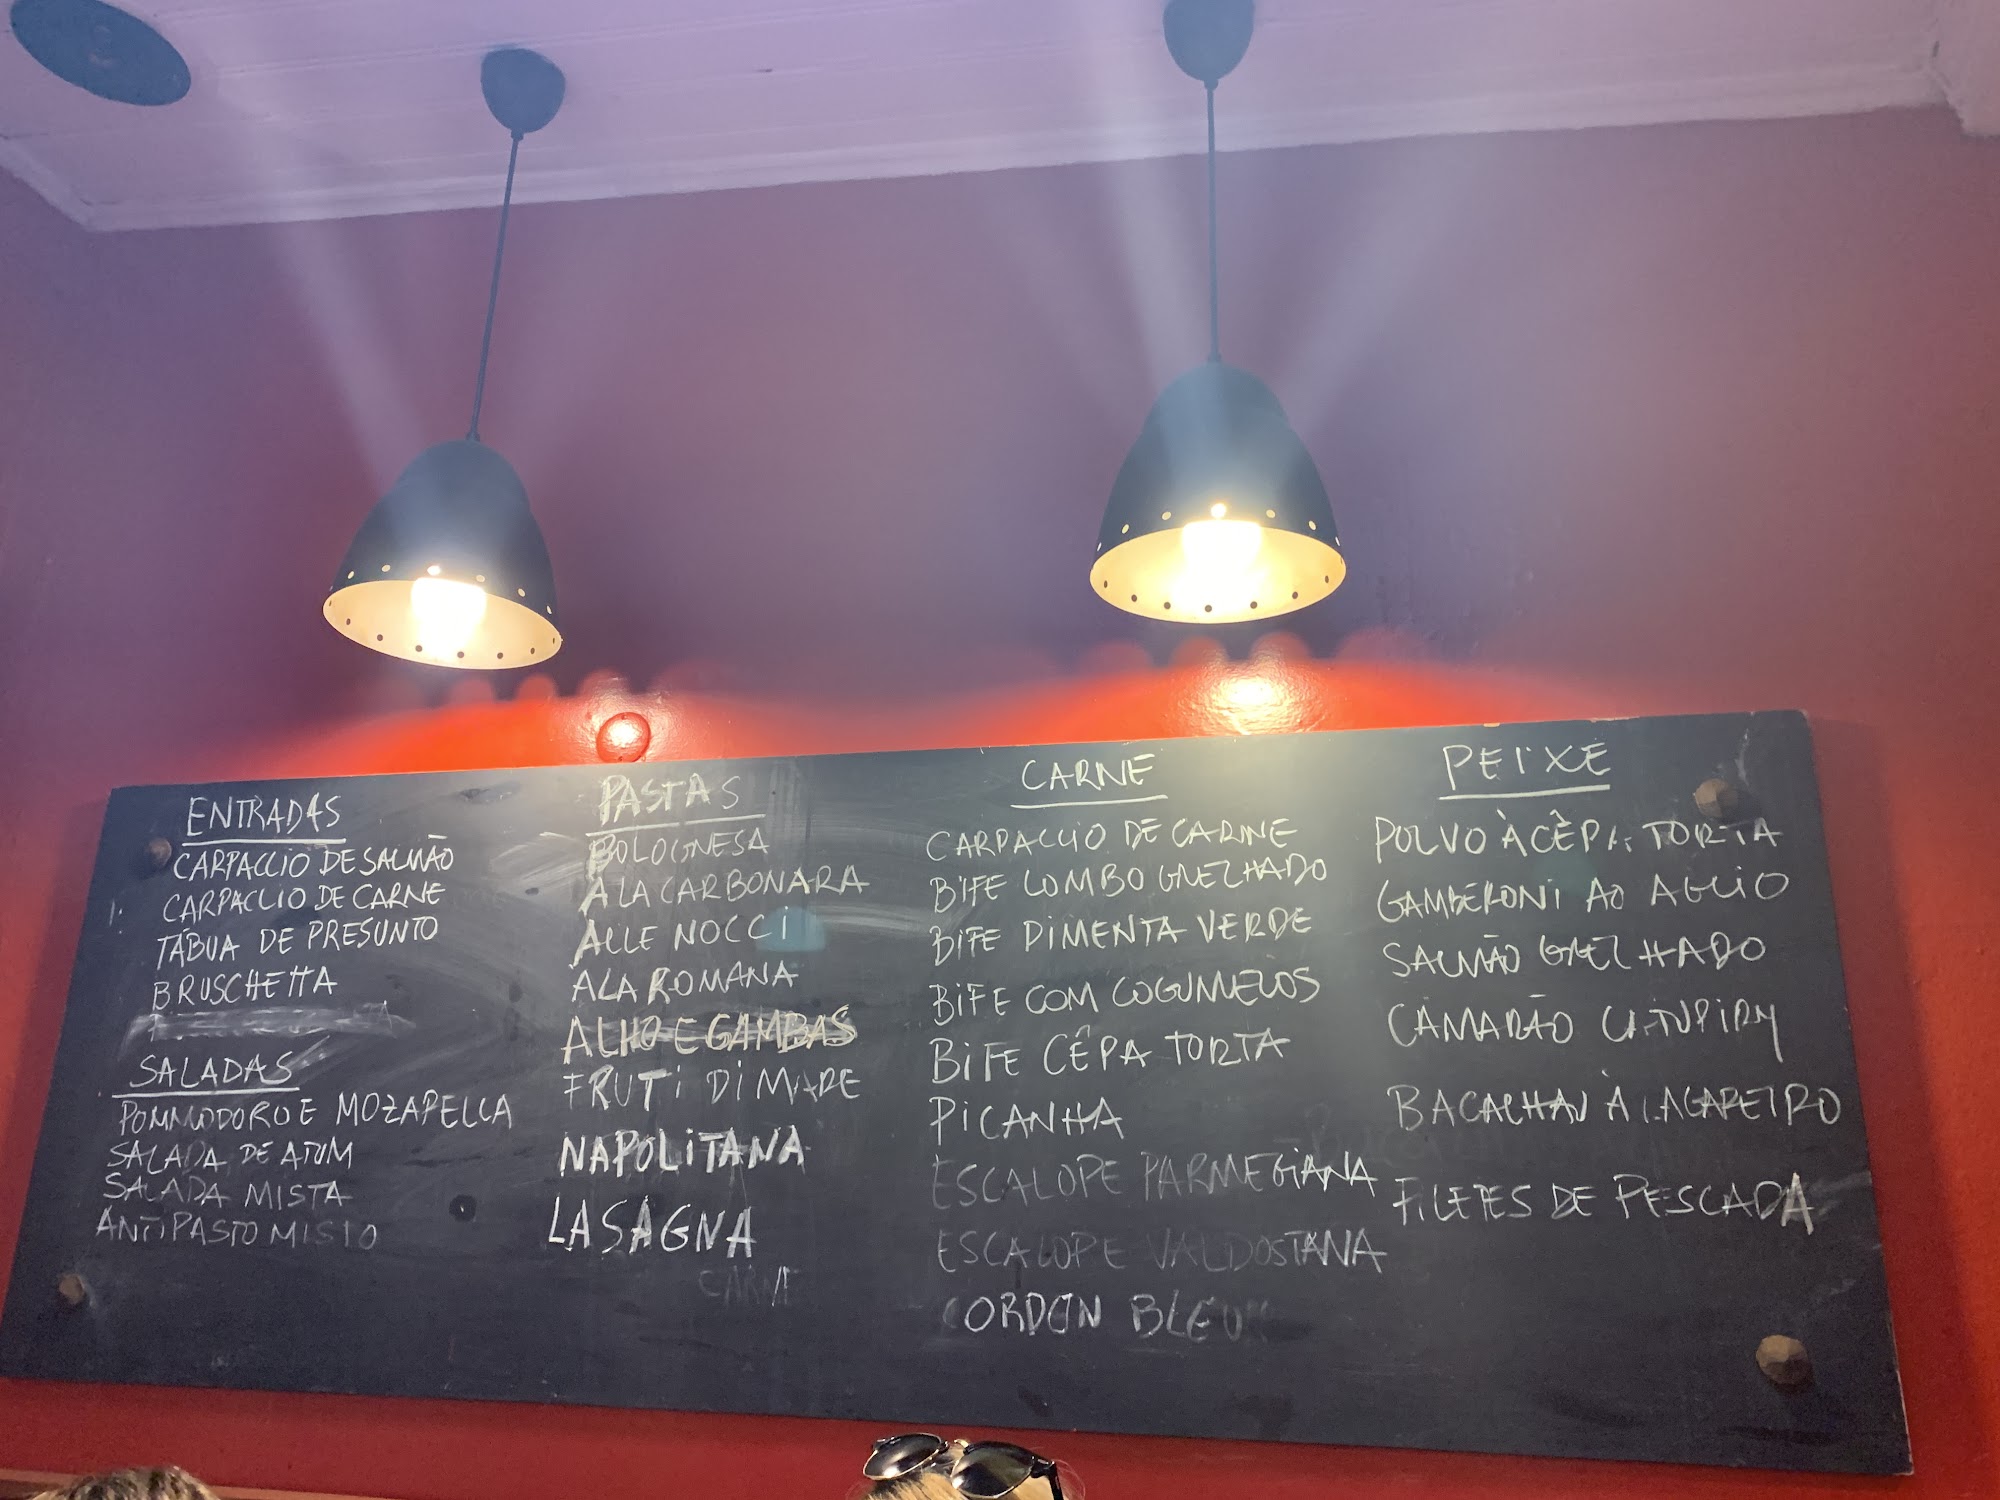 ENTRADAS
CARPACCIO DE SALMÃO
CARPACCIO DE CARNE
TÁBUA DE PRESUNTO
BRUSCHETTA
SALADAS
POMMODORO E MOZAPELLA
SALADA DE ATUM
SALADA MISTA
ANTIPASTO MISTO
PASTAS
BOLOGNESA
A LA CARBONARA
ALLE NOCCI
A LA ROMANA
ALHO E GAMBAS
FRUTI DI MARE
NAPOLITANA
LASAGNA
CARNE
CARNE
CARPACCIO DE CARNE
BIFE LOMBO GRELHADO
BIFE PIMENTA VERDE
BIFE COM COGUMELOS
BIFE CÊPA TORTA
PICANHA
ESCALOPE PARMEGIANA
ESCALOPE VALDOSTANA
CORDON BLEU
PEIXE
POLVO À CÊPA TORTA
GAMBERONI AO AGLIO
SALMÃO GRELHADO
CAMARÃO CATUPIRY
BACALHAU À LAGAREIRO
FILETES DE PESCADA